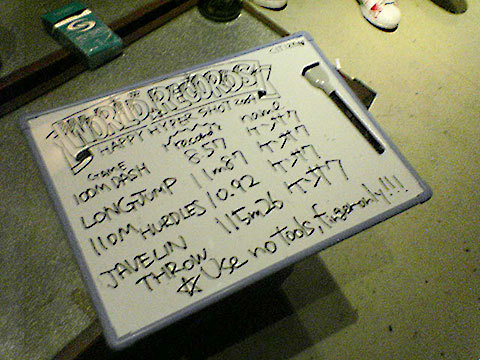 WORLD RECORDS!
HAPPY HYPER SHOT 2004
GAME record name
100M DASH 8.57 ケンサワ
LONG JUMP 11m87 ケンサワ
110M HURDLES 10.92 ケンサワ
JAVELIN THROW 115m26 ケンサワ
☆Use no tools, finger only!!!